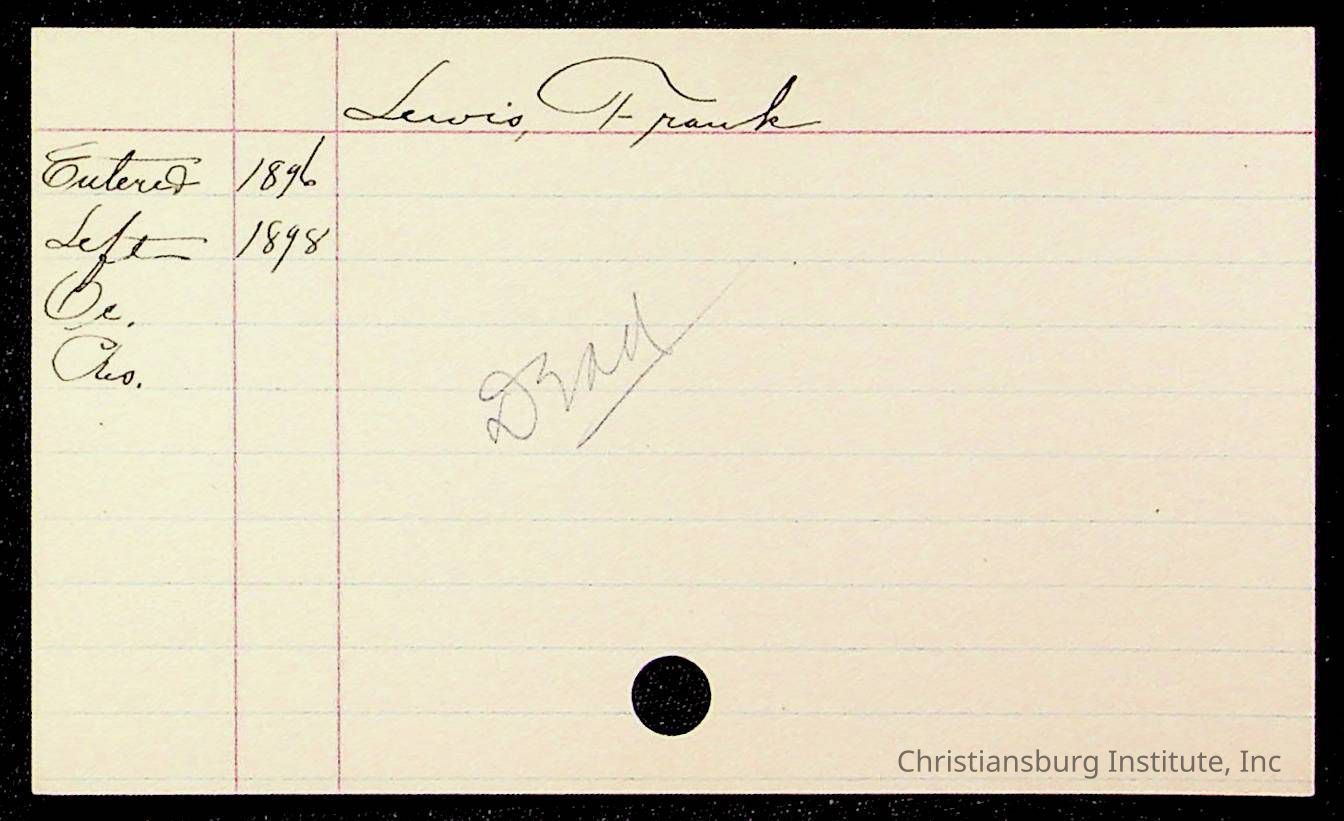 Lewis, Frank
Entered 1896
Left 1898
Oc.
Res.
Dead
Christiansburg Institute, Inc